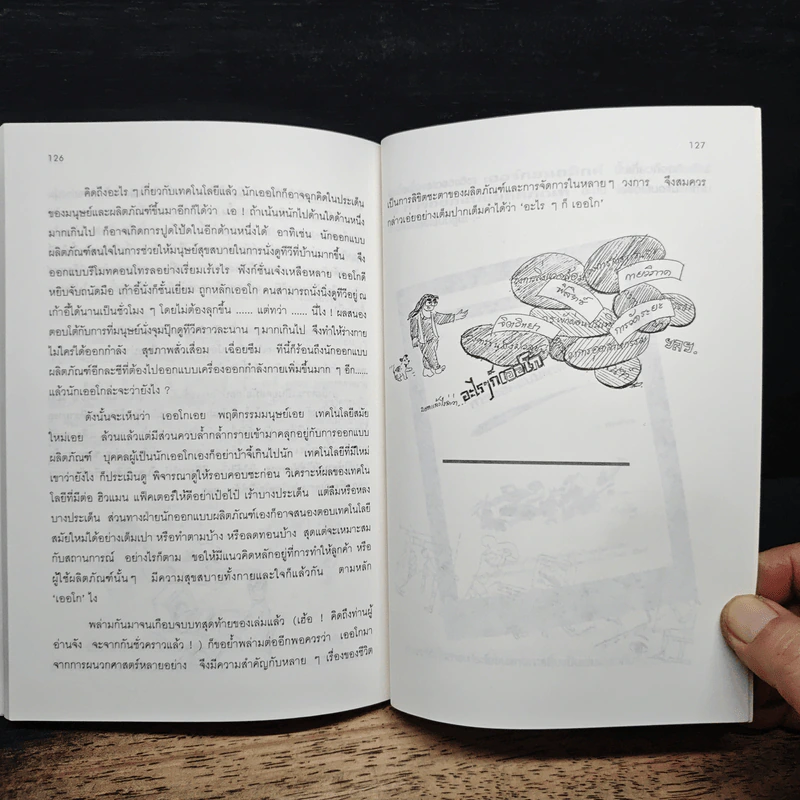 126
คิดถึงอะไร ๆ เกี่ยวกับเทคโนโลยีแล้ว นักเออโกก็อาจฉุกคิดในประเด็น
ของมนุษย์และผลิตภัณฑ์ขึ้นมาอีกก็ได้ว่า เอ ! ถ้าเน้นหนักไปด้านใดด้านหนึ่ง
มากเกินไป ก็อาจเกิดการปูดโป้ดในอีกด้านหนึ่งได้ อาทิเช่น นักออกแบบ
ผลิตภัณฑ์สนใจในการช่วยให้มนุษย์สุขสบายในการนั่งดูทีวีที่บ้านมากขึ้น จึง
ออกแบบรีโมทคอนโทรลอย่างเรี่ยมเร้เรไร ฟังก์ชั่นเจ๋งเหลือหลาย เออโกดี
หยิบจับถนัดมือ เก้าอี้นั่งก็ชั้นเยี่ยม ถูกหลักเออโก คนสามารถนั่งนิ่งดูทีวีอยู่ ณ
เก้าอี้ได้นานเป็นชั่วโมง ๆ โดยไม่ต้องลุกขึ้น ...... แต่ทว่า ..... นี่ไง ! ผลสนอง
ตอบโต้กับการที่มนุษย์นั่งจุมปุ๊กดูทีวีคราวละนาน ๆ มากเกินไป จึงทำให้ร่างกาย
ไม่ใคร่ได้ออกกำลัง สุขภาพสั่วเสื่อม เฉื่อยซึม ทีนี้ก็ร้อนถึงนักออกแบบ
ผลิตภัณฑ์อีกละซีที่ต้องไปออกแบบเครื่องออกกำลังกายเพิ่มขึ้นมาก ๆ อีก.....
แล้วนักเออโกล่ะจะว่ายังไง ?
ดังนั้นจะเห็นว่า เออโกเอย พฤติกรรมมนุษย์เอย เทคโนโลยีสมัย
ใหม่เอย ล้วนแล้วแต่มีส่วนควบล้ำกล้ำกรายเข้ามาคลุกอยู่กับการออกแบบ
ผลิตภัณฑ์ บุคคลผู้เป็นนักเออโกเองก็อย่าบ้าจี้เกินไปนัก เทคโนโลยีที่มีใหม่
เขาว่ายังไง ก็ประเมินดู พิจารณาดูให้รอบคอบซะก่อน วิเคราะห์ผลของเทคโน
โลยีที่มีต่อ ฮิวแมน แฟ็คเตอร์ให้ดีอย่าเป๋อไป๋ เร้าบางประเด็น แต่ลืมหรือหลง
บางประเด็น ส่วนทางฝ่ายนักออกแบบผลิตภัณฑ์เองก็อาจสนองตอบเทคโนโลยี
สมัยใหม่ได้อย่างเต็มเปา หรือทำตามบ้าง หรือลดทอนบ้าง สุดแต่จะเหมาะสม
กับสถานการณ์ อย่างไรก็ตาม ขอให้มีแนวคิดหลักอยู่ที่การทำให้ลูกค้า หรือ
ผู้ใช้ผลิตภัณฑ์นั้น ๆ มีความสุขสบายทั้งกายและใจก็แล้วกัน ตามหลัก
'เออโก' ไง
พล่ามกันมาจนเกือบจบบทสุดท้ายของเล่มแล้ว (เฮ้อ ! คิดถึงท่านผู้
อ่านจัง จะจากกันชั่วคราวแล้ว ! ) ก็ขอย้ำพล่ามต่ออีกพอควรว่า เออโกมา
จากการผนวกศาสตร์หลายอย่าง จึงมีความสำคัญกับหลาย ๆ เรื่องของชีวิต
127
เป็นการลิขิตชะตาของผลิตภัณฑ์และการจัดการในหลาย ๆ วงการ จึงสมควร
กล่าวเอ่ยอย่างเต็มปากเต็มคำได้ว่า 'อะไร ๆ ก็ เออโก'
กายวิภาค
ฟิสิกส์
จิตวิทยา
การวัดระยะ
ฯลฯ.
อะไรๆก็เออโก